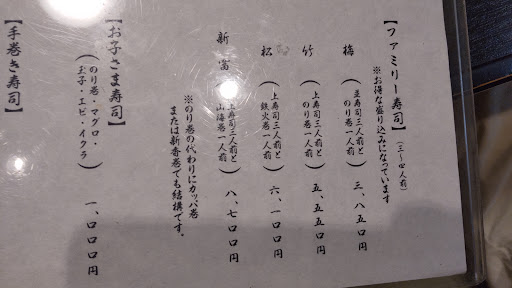 【ファミリー寿司】(三〜四人前)
※お得な盛り込みになっています
梅 (並寿司三人前とのり巻一人前) 三、八五〇円
竹 (上寿司三人前とのり巻一人前) 五、五〇〇円
松 (上寿司三人前と鉄火巻一人前) 六、一〇〇円
新富 (上寿司三人前と山海巻一人前) 八、七〇〇円
※のり巻の代わりにカッパ巻
または新香巻でも結構です。
【お子さま寿司】
(のり巻・マグロ・玉子・エビ・イクラ) 一、〇〇〇円
【手巻き寿司】